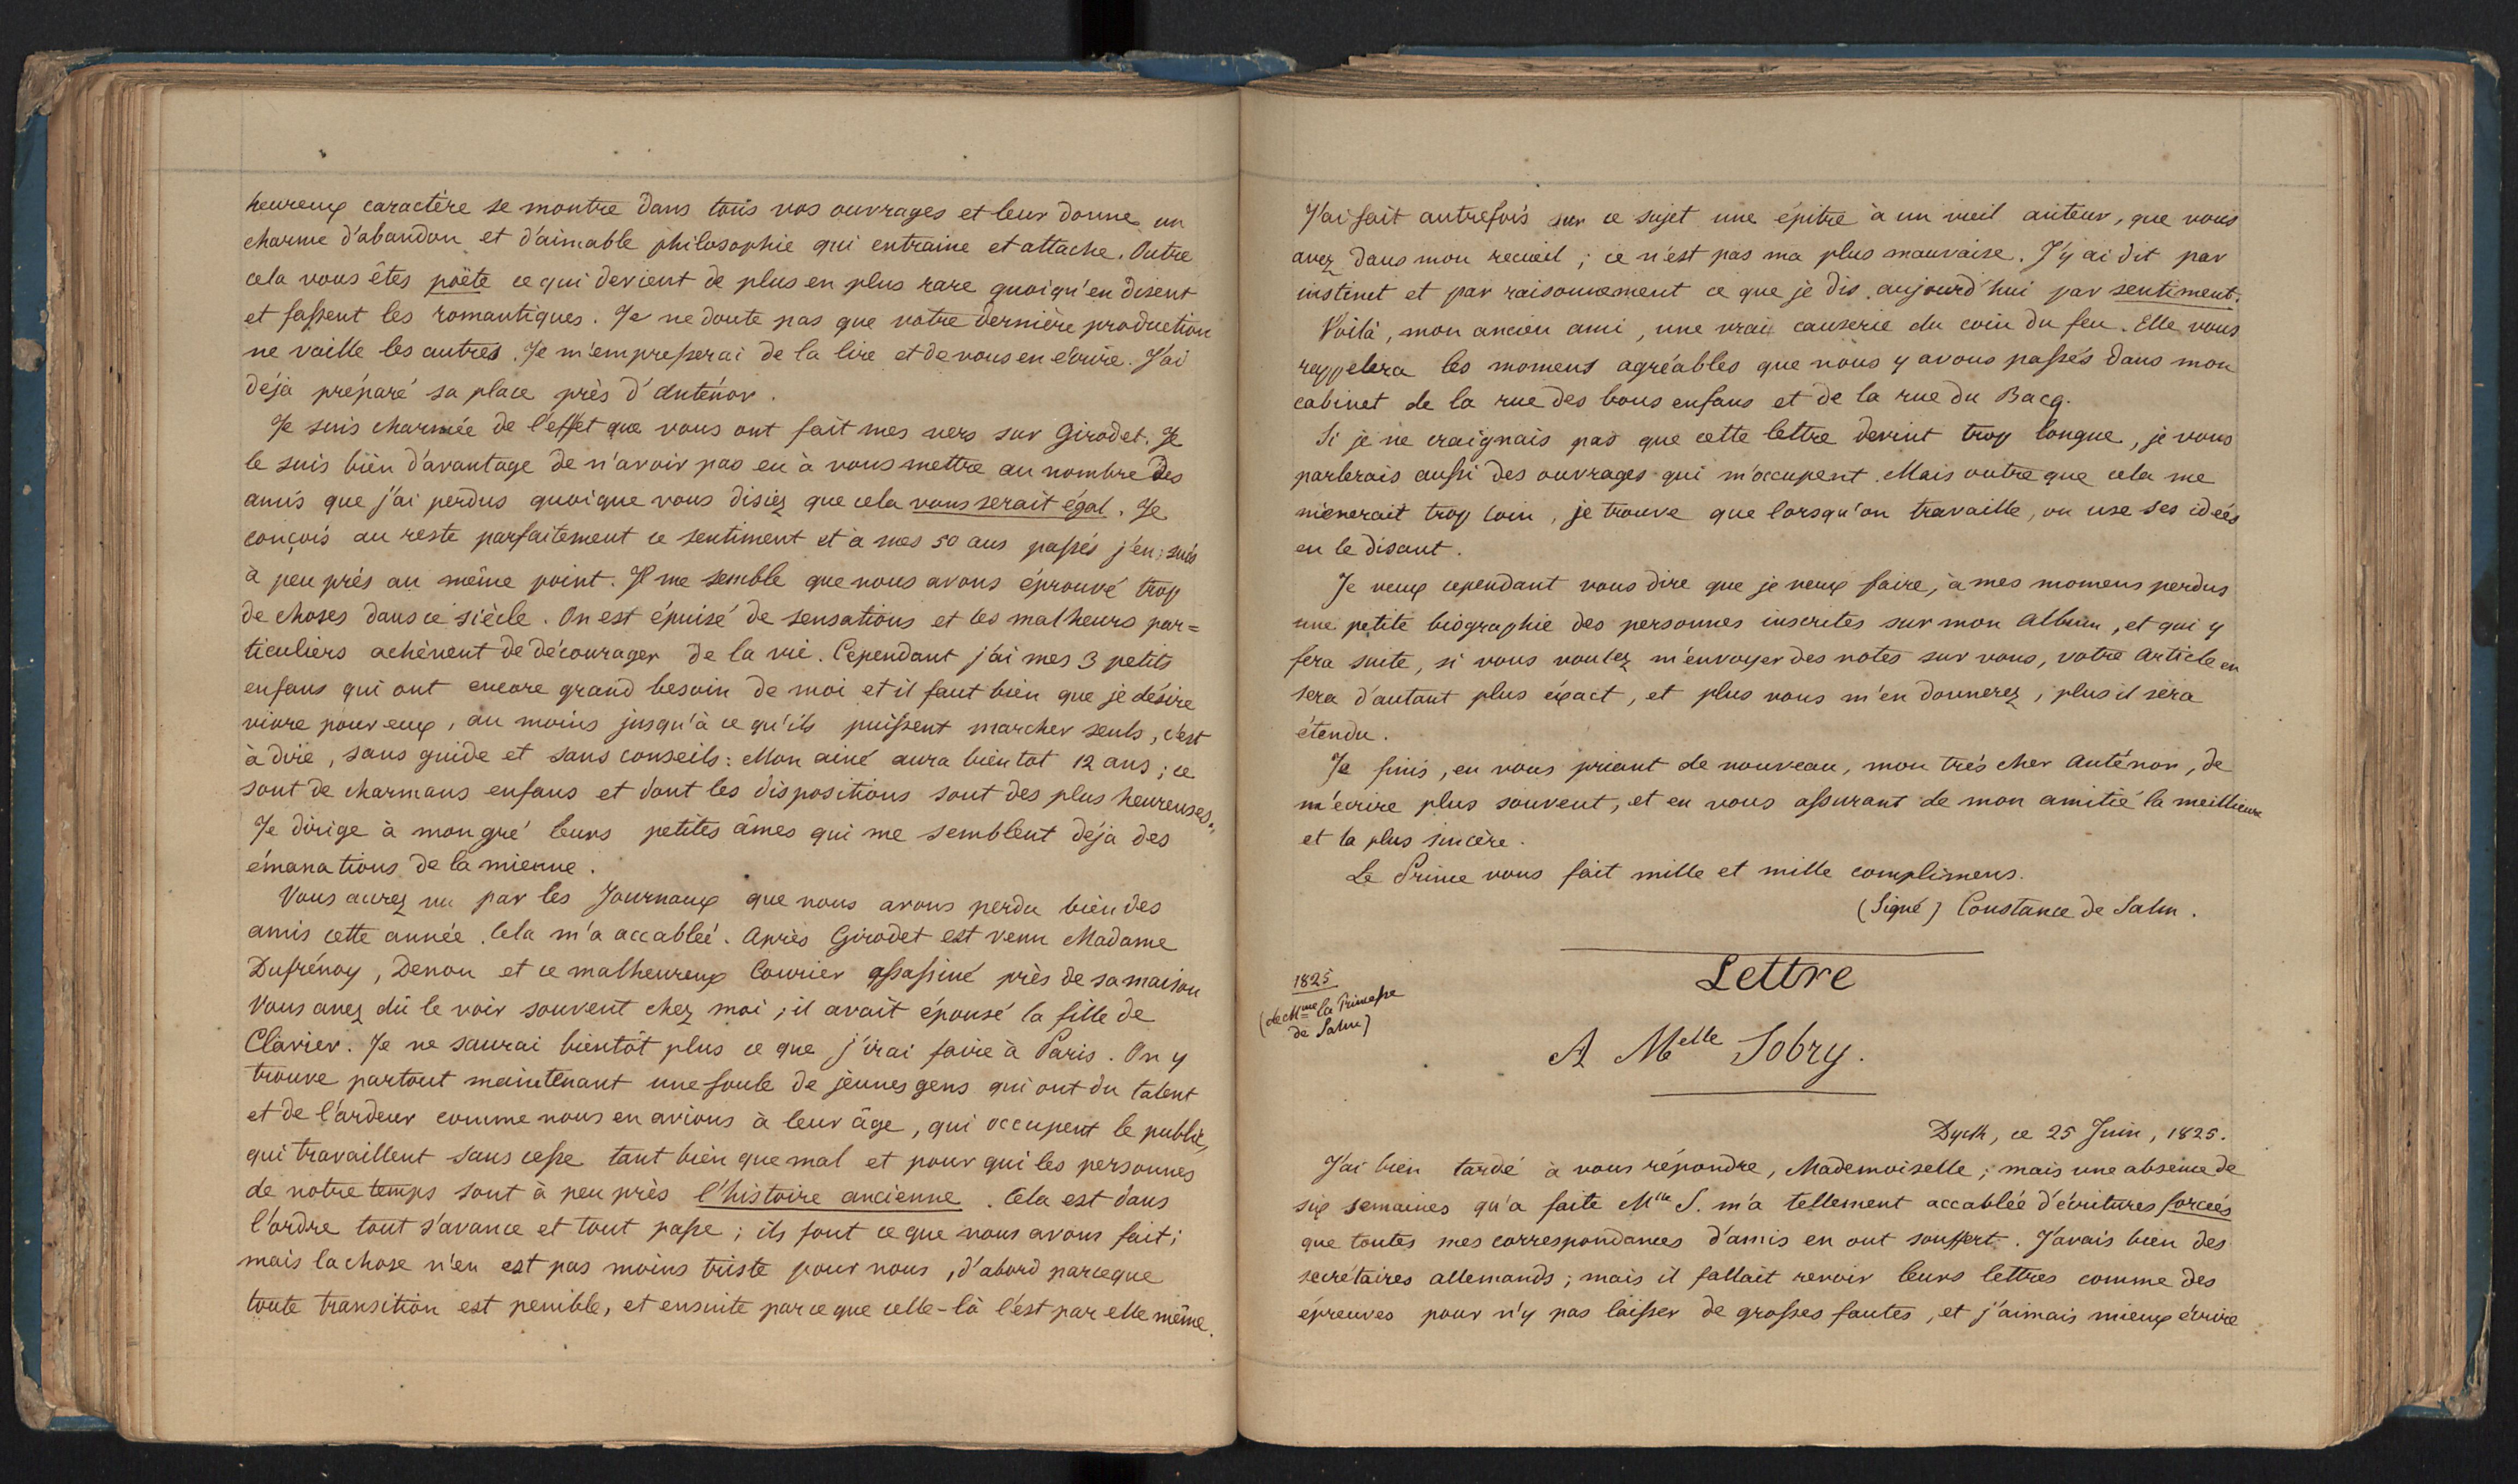 heureux caractère se montre dans tous vos ouvrages et leur donne un
charme d'abandon et d'aimable philosophie qui entraine et attache. Outre
cela vous êtes poëte ce qui devient de plus en plus rare quoiqu'en disent
et fassent les romantiques. Je ne doute pas que votre dernière production
ne vaille les autres. Je m'empresserai de la lire et de vous en écrire. J'ai
déjà préparé sa place près d'Anténor.
Je suis charmée de l'effet que vous ont fait mes vers sur Girodet. Je
le suis bien d'avantage de n'avoir pas eu à vous mettre au nombre des
amis que j'ai perdus quoique vous disiez que cela vous serait égal. Je
conçois au reste parfaitement ce sentiment et à mes 50 ans passés j'en suis
à peu près au même point. Il me semble que nous avons éprouvé trop
de choses dans ce siècle. On est épuisé de sensations et les malheurs par=
ticuliers achèvent de décourager de la vie. Cependant j'ai mes 3 petits
enfans qui ont encore grand besoin de moi et il faut bien que je désire
vivre pour eux, au moins jusqu'à ce qu'ils puissent marcher seuls, c'est
à dire, sans guide et sans conseils: Mon ainé aura bientot 12 ans; ce
sont de charmans enfans et dont les dispositions sont des plus heureuses.
Je dirige à mon gré leurs petites âmes qui me semblent déjà des
émanations de la mienne.
Vous aurez vu par les Journaux que nous avons perdu bien des
amis cette année. Cela m'a accablée. Après Girodet est venu Madame
Dufrénoy, Denon et ce malheureux Courier assassiné près de sa maison
Vous avez dû le voir souvent chez moi; il avait épousé la fille de
Clavier. Je ne saurai bientôt plus ce que j'irai faire à Paris. On y
trouve partout maintenant une foule de jeunes gens qui ont du talent
et de l'ardeur comme nous en avions à leur âge, qui occupent le public,
qui travaillent sans cesse tant bien que mal et pour qui les personnes
de notre temps sont à peu près l'histoire ancienne. Cela est dans
l'ordre tout s'avance et tout passe; ils font ce que nous avons fait;
mais la chose n'en est pas moins triste pour nous, d'abord parceque
toute transition est penible, et ensuite parce que celle-là l'est par elle même.
J'ai fait autrefois sur ce sujet une épitre à un vieil auteur, que vous
avez dans mon recueil; ce n'est pas ma plus mauvaise. J'y ai dit par
instinct et par raisonnement ce que je dis aujourd'hui par sentiment.
Voilà, mon ancien ami, une vrai causerie du coin du feu. Elle vous
rappelera les momens agréables que nous y avons passés dans mon
cabinet de la rue des bons enfans et de la rue du Bacq.
Si je ne craignais pas que cette lettre devint trop longue, je vous
parlerais aussi des ouvrages qui m'occupent. Mais outre que cela me
mènerait trop loin, je trouve que lorsqu'on travaille, on use ses idées
en le disant.
Je veux cependant vous dire que je veux faire, à mes momens perdus
une petite biographie des personnes inscrites sur mon album, et qui y
fera suite, si vous voulez m'envoyer des notes sur vous, votre article en
sera d'autant plus éxact, et plus vous m'en donnerez, plus il sera
étendu.
Je finis, en vous priant de nouveau, mon très cher Anténor, de
m'écrire plus souvent, et en vous assurant de mon amitié la meilleure
et la plus sincère.
Le Prince vous fait mille et mille complimens.
(Signé) Constance de Salm.
1825
(de Mme la Princesse
de Salm)
Lettre
A Melle Sobry.
Dyck, ce 25 Juin, 1825.
J'ai bien tardé à vous répondre, Mademoiselle; mais une absence de
six semaines qu'a faite Mlle S. m'a tellement accablée d'écritures forcées
que toutes mes correspondances d'amis en ont souffert. J'avais bien des
secrétaires allemands; mais il fallait revoir leurs lettres comme des
épreuves pour n'y pas laisser de grosses fautes, et j'aimais mieux écrire